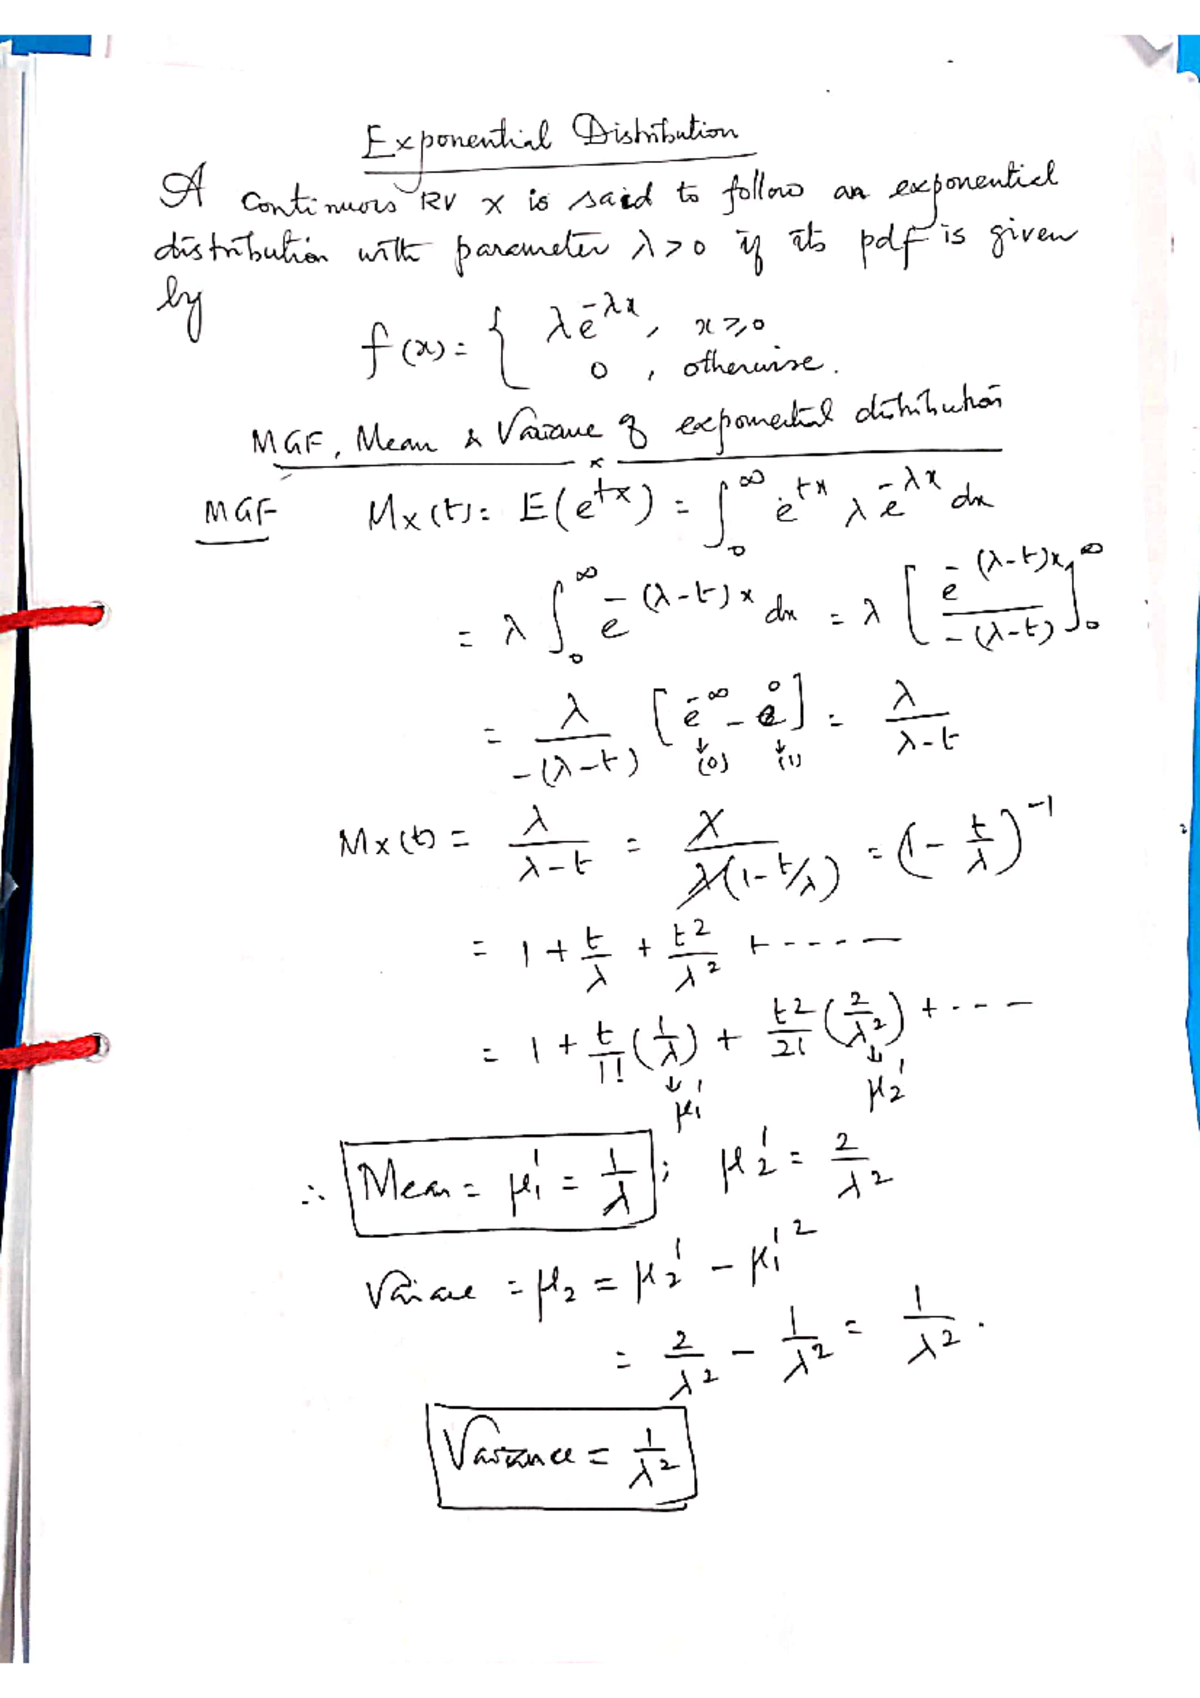 Exponential Distribution
A continuous RV X is said to follow an exponential
distribution with parameter λ>0 if its pdf is given
by
f(x) = { λe^{-λx}, x ≥ 0
0, otherwise.
MGF, Mean & Variance of exponential distribution
MGF M_X(t) = E(e^{tx}) = ∫_0^∞ e^{tx} λ e^{-λx} dx
= λ ∫_0^∞ e^{-(λ-t)x} dx = λ [ e^{-(λ-t)x} / -(λ-t) ]_0^∞
= λ / -(λ-t) [ e^{-∞} - e^0 ] = λ / (λ-t)
↓ (0) ↓ (1)
M_X(t) = λ / (λ-t) = λ / λ(1-t/λ) = (1 - t/λ)^{-1}
= 1 + t/λ + t^2/λ^2 + -----
= 1 + t/1! (1/λ) + t^2/2! (2/λ^2) + ---
↓ μ_1' ↓ μ_2'
∴ Mean = μ_1' = 1/λ ; μ_2' = 2/λ^2
Variance = μ_2 = μ_2' - μ_1'^2
= 2/λ^2 - 1/λ^2 = 1/λ^2.
Variance = 1/λ^2